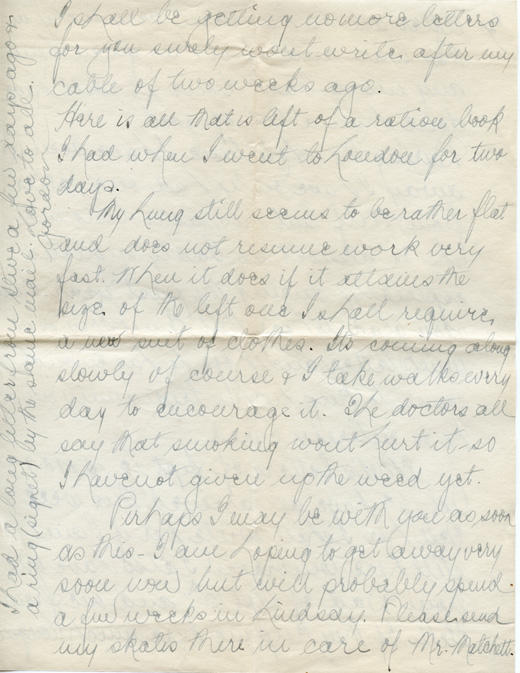 I shall be getting no more letters
for you surely wont write after my
cable of two weeks ago.
Here is all that is left of a ration book
I had when I went to London for two
days.
My lung still seems to be rather flat
and does not resume work very
fast. When it does if it attains the
size of the left one I shall require
a new suit of clothes. Its coming along
slowly of course & I take walks every
day to encourage it. The doctors all
say that smoking wont hurt it - so
I have not given up the weed yet.
Perhaps I may be with you as soon
as this - I am hoping to get away very
soon now but will probably spend
a few weeks in Lindsay. Please send
my skates there in care of Mr. Matchett.
I had a long letter from Olive a few days ago &
a ring (signet) by the same mail. Love to all.
Gordon